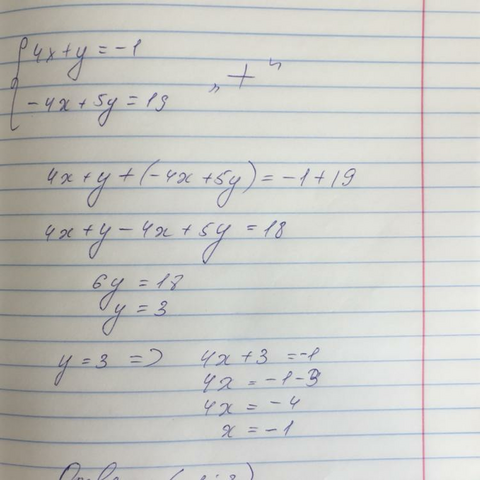 4x+y=-1
-4x+5y=19
„+"
4x+y+(-4x+5y)=-1+19
4x+y-4x+5y=18
6y=18
y=3
y=3 => 4x+3=-1
4x=-1-3
4x=-4
x=-1